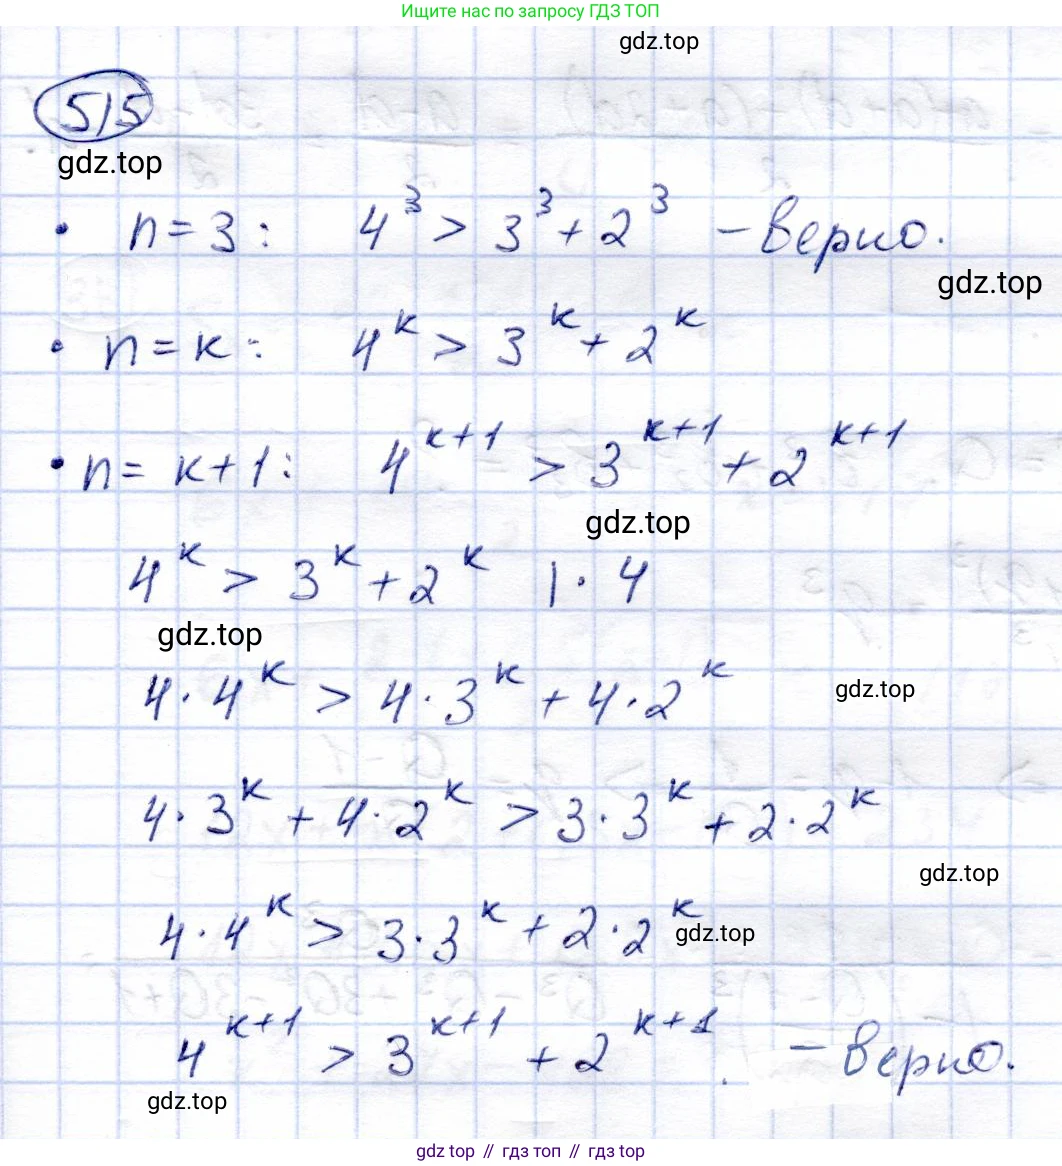 Ищите нас по запросу ГДЗ ТОП
gdz.top
515
gdz.top
• n = 3 : 4³ > 3³ + 2³ – верно.
gdz.top
• n = к : 4^к > 3^к + 2^к
• n = к+1 : 4^(к+1) > 3^(к+1) + 2^(к+1)
gdz.top
4^к > 3^к + 2^к | · 4
gdz.top
4 · 4^к > 4 · 3^к + 4 · 2^к
gdz.top
4 · 3^к + 4 · 2^к > 3 · 3^к + 2 · 2^к
gdz.top
4 · 4^к > 3 · 3^к + 2 · 2^к
gdz.top
4^(к+1) > 3^(к+1) + 2^(к+1) – верно.
gdz.top
gdz top // гдз топ // gdz.top